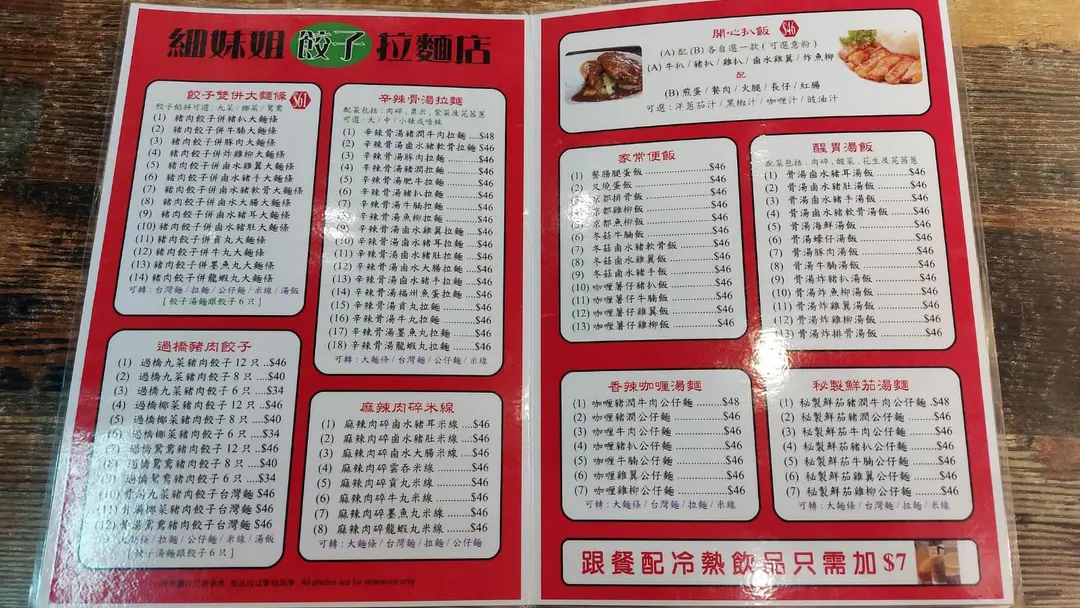 細妹姐餃子拉麵店
餃子雙併大麵條 $61
餃子餡料可選：九菜 / 椰菜 / 鴛鴦
(1) 豬肉餃子併豬扒大麵條
(2) 豬肉餃子併牛腩大麵條
(3) 豬肉餃子併豚肉大麵條
(4) 豬肉餃子併炸雞柳大麵條
(5) 豬肉餃子併鹵水雞翼大麵條
(6) 豬肉餃子併鹵水豬手大麵條
(7) 豬肉餃子併鹵水豬軟骨大麵條
(8) 豬肉餃子併鹵水大腸大麵條
(9) 豬肉餃子併鹵水豬耳大麵條
(10) 豬肉餃子併鹵水豬肚大麵條
(11) 豬肉餃子併貢丸大麵條
(12) 豬肉餃子併牛丸大麵條
(13) 豬肉餃子併墨魚丸大麵條
(14) 豬肉餃子併龍蝦丸大麵條
可轉：台灣麵 / 拉麵 / 公仔麵 / 米線 / 湯飯
[ 餃子湯麵跟餃子 6 只 ]
過橋豬肉餃子
(1) 過橋九菜豬肉餃子 12 只 ..$46
(2) 過橋九菜豬肉餃子 8 只 ....$40
(3) 過橋九菜豬肉餃子 6 只 ....$34
(4) 過橋椰菜豬肉餃子 12 只 ..$46
(5) 過橋椰菜豬肉餃子 8 只 ....$40
(6) 過橋椰菜豬肉餃子 6 只 ....$34
(7) 過橋鴛鴦豬肉餃子 12 只 ..$46
(8) 過橋鴛鴦豬肉餃子 8 只 ....$40
(9) 過橋鴛鴦豬肉餃子 6 只 ....$34
(10) 骨湯九菜豬肉餃子台灣麵 $46
(11) 骨湯椰菜豬肉餃子台灣麵 $46
(12) 骨湯鴛鴦豬肉餃子台灣麵 $46
大麵條 / 拉麵 / 公仔麵 / 米線 / 湯飯
[ 餃子湯麵跟餃子 6 只 ]
All photos are for reference only
辛辣骨湯拉麵
配菜包括：肉碎，粟米，紫菜及芫茜蔥
可選：大 / 中 / 小辣或唔辣
(1) 辛辣骨湯豬潤牛肉拉麵 ....$48
(2) 辛辣骨湯鹵水豬軟骨拉麵 $46
(3) 辛辣骨湯豚肉拉麵 ..........$46
(4) 辛辣骨湯豬潤拉麵 ..........$46
(5) 辛辣骨湯肥牛拉麵 ..........$46
(6) 辛辣骨湯豬扒拉麵 ..........$46
(7) 辛辣骨湯牛腩拉麵 ..........$46
(8) 辛辣骨湯魚柳拉麵 ..........$46
(9) 辛辣骨湯鹵水雞翼拉麵 ....$46
(10) 辛辣骨湯鹵水豬耳拉麵 ....$46
(11) 辛辣骨湯鹵水豬肚拉麵 ....$46
(12) 辛辣骨湯鹵水大腸拉麵 ....$46
(13) 辛辣骨湯鹵水豬手拉麵 ....$46
(14) 辛辣骨湯福州魚蛋拉麵 ....$46
(15) 辛辣骨湯貢丸拉麵 ..........$46
(16) 辛辣骨湯牛丸拉麵 ..........$46
(17) 辛辣骨湯墨魚丸拉麵 .......$46
(18) 辛辣骨湯龍蝦丸拉麵 .......$46
可轉：大麵條 / 台灣麵 / 公仔麵 / 米線
麻辣肉碎米線
(1) 麻辣肉碎鹵水豬耳米線 ....$46
(2) 麻辣肉碎鹵水豬肚米線 ....$46
(3) 麻辣肉碎鹵水大腸米線 ....$46
(4) 麻辣肉碎雲吞米線 ..........$46
(5) 麻辣肉碎貢丸米線 ..........$46
(6) 麻辣肉碎牛丸米線 ..........$46
(7) 麻辣肉碎墨魚丸米線 .......$46
(8) 麻辣肉碎龍蝦丸米線 .......$46
可轉：大麵條 / 台灣麵 / 拉麵 / 公仔麵
開心扒飯 $46
(A) 配 (B) 各自選一款 ( 可選意粉 )
(A) 牛扒 / 豬扒 / 雞扒 / 鹵水雞翼 / 炸魚柳
配
(B) 煎蛋 / 餐肉 / 火腿 / 長仔 / 紅腸
可選：洋蔥茄汁 / 黑椒汁 / 咖喱汁 / 豉油汁
家常便飯
(1) 餐腸腿蛋飯 ..........$46
(2) 叉燒蛋飯 ..........$46
(3) 京都排骨飯 ..........$46
(4) 京都雞柳飯 ..........$46
(5) 京都魚柳飯 ..........$46
(6) 冬菇牛腩飯 ..........$46
(7) 冬菇鹵水豬軟骨飯 ..........$46
(8) 冬菇鹵水雞翼飯 ..........$46
(9) 冬菇鹵水豬手飯 ..........$46
(10) 咖喱薯仔豬扒飯 ..........$46
(11) 咖喱薯仔牛腩飯 ..........$46
(12) 咖喱薯仔雞翼飯 ..........$46
(13) 咖喱薯仔雞柳飯 ..........$46
醒胃湯飯
配菜包括：肉碎，酸菜，花生及芫茜蔥
(1) 骨湯鹵水豬耳湯飯 ..........$46
(2) 骨湯鹵水豬肚湯飯 ..........$46
(3) 骨湯鹵水豬手湯飯 ..........$46
(4) 骨湯鹵水豬軟骨湯飯 ..........$46
(5) 骨湯海鮮湯飯 ..........$46
(6) 骨湯蠔仔湯飯 ..........$46
(7) 骨湯豚肉湯飯 ..........$46
(8) 骨湯牛腩湯飯 ..........$46
(9) 骨湯炸豬扒湯飯 ..........$46
(10) 骨湯炸魚柳湯飯 ..........$46
(11) 骨湯炸雞翼湯飯 ..........$46
(12) 骨湯炸雞柳湯飯 ..........$46
(13) 骨湯炸排骨湯飯 ..........$46
香辣咖喱湯麵
(1) 咖喱豬潤牛肉公仔麵 ..........$48
(2) 咖喱豬潤公仔麵 ..........$46
(3) 咖喱牛肉公仔麵 ..........$46
(4) 咖喱豬扒公仔麵 ..........$46
(5) 咖喱牛腩公仔麵 ..........$46
(6) 咖喱雞翼公仔麵 ..........$46
(7) 咖喱雞柳公仔麵 ..........$46
可轉：大麵條 / 台灣麵 / 拉麵 / 米線
秘製鮮茄湯麵
(1) 秘製鮮茄豬潤牛肉公仔麵 .$48
(2) 秘製鮮茄豬潤公仔麵 .......$46
(3) 秘製鮮茄牛肉公仔麵 .......$46
(4) 秘製鮮茄豬扒公仔麵 .......$46
(5) 秘製鮮茄牛腩公仔麵 .......$46
(6) 秘製鮮茄雞翼公仔麵 .......$46
(7) 秘製鮮茄雞柳公仔麵 .......$46
可轉：大麵條 / 台灣麵 / 拉麵 / 米線
跟餐配冷熱飲品只需加 $7